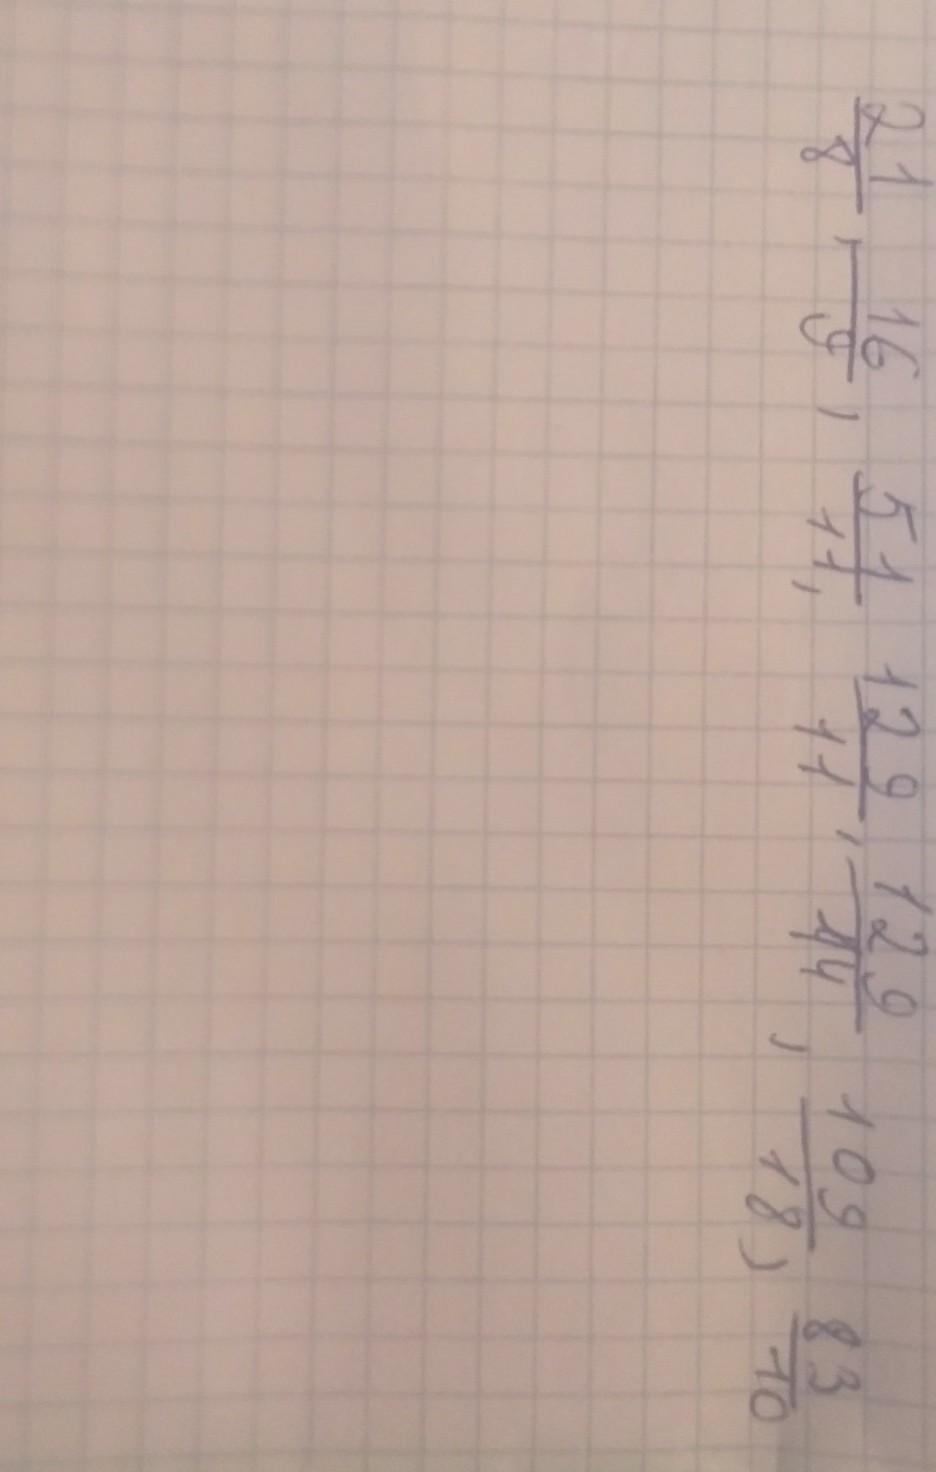 21/8, 16/9, 51/11, 129/11, 129/14, 109/18, 83/10